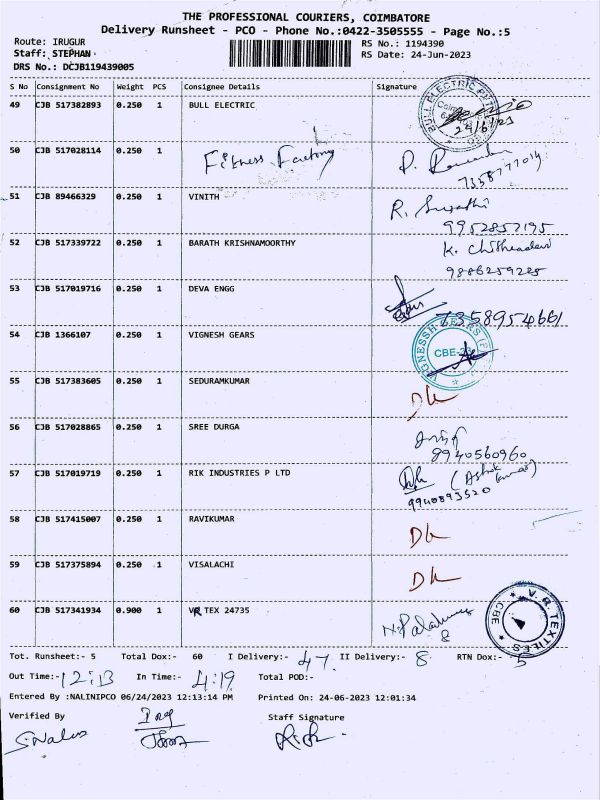 THE PROFESSIONAL COURIERS, COIMBATORE
Delivery Runsheet - PCO - Phone No.:0422-3505555 - Page No.:5
Route: IRUGUR
RS No.: 1194390
Staff: STEPHAN
RS Date: 24-Jun-2023
DRS No.: DCJB119439005
S No Consignment No Weight PCS Consignee Details Signature
49 CJB 517382893 0.250 1 BULL ELECTRIC
24/6/23
50 CJB 517028114 0.250 1 Fitness Factory
51 CJB 89466329 0.250 1 VINITH
9952857195
52 CJB 517339722 0.250 1 BARATH KRISHNAMOORTHY
53 CJB 517019716 0.250 1 DEVA ENGG
7358954661
54 CJB 1366107 0.250 1 VIGNESH GEARS
55 CJB 517383605 0.250 1 SEDURAMKUMAR
56 CJB 517028865 0.250 1 SREE DURGA
8940560960
57 CJB 517019719 0.250 1 RIK INDUSTRIES P LTD
9940893520
58 CJB 517415007 0.250 1 RAVIKUMAR
59 CJB 517375894 0.250 1 VISALACHI
60 CJB 517341934 0.900 1 VR TEX 24735
V.R. TEXTILES
CBE
Tot. Runsheet:- 5 Total Dox:- 60 I Delivery:- 47 II Delivery:- 8 RTN Dox:- 5
Out Time:- 12:13 In Time:- 4:19 Total POD:-
Entered By :NALINIPCO 06/24/2023 12:13:14 PM Printed On: 24-06-2023 12:01:34
Verified By Staff Signature
S.Nalini